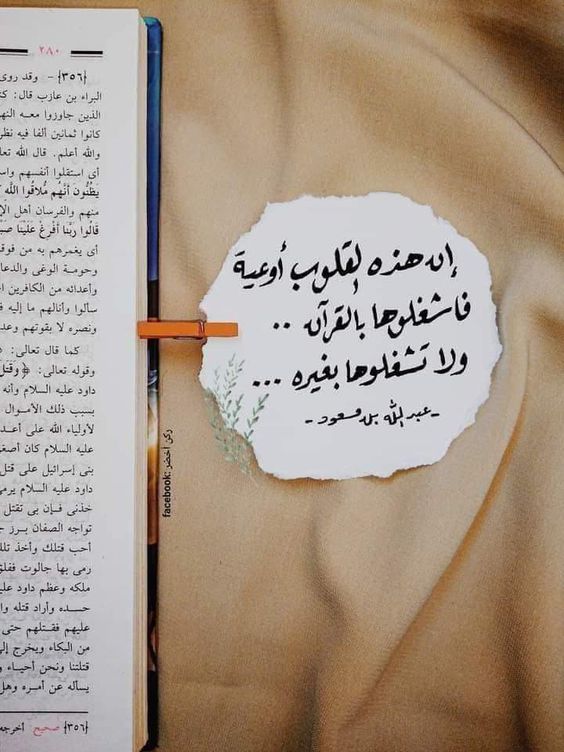 إن هذه القلوب أوعية
فاشغلوها بالقرآن ..
ولا تشغلوها بغيره ...
- عبد الله بن مسعود -
facebook: ركن أخضر
٢٨٠
{٣٥٦} - وقد روى
البراء بن عازب قال: كنا
الذين جاوزوا معه النهر
كانوا ثمانين ألفا فيه نظر
والله أعلم. قال الله تعا
أى استقلوا أنفسهم واس
يظنون أنهم ملاقوا الله
منهم والفرسان أهل الإ
قالوا ربنا أفرغ علينا صب
أى يغمرهم به من فوقه
وحومة الوغى والدعا
وأعدائه من الكافرين ا
سألوا وأنالهم ما إليه ف
ونصره لا بقوتهم وعد
كما قال تعالى:
وقوله تعالى: ﴿وقتل
داود عليه السلام وأنه
بسبب ذلك الأموال
لأولياء الله على أعد
عليه السلام كان أصغر
بنى إسرائيل على قتل
داود عليه السلام يرمى
خذنى فإن بى تقتل
تواجه الصفان برز ج
أحب قتلك وأخذ تلك
رمى بها جالوت ففلق
ملكه وعظم داود عليه
حسده وأراد قتله وا
عليهم فقتلهم حتى
من البكاء ويخرج إلى
قتلتنا ونحن أحياء و
يسأله عن أمره وهل
{٣٥٦} صحيح أخرجه